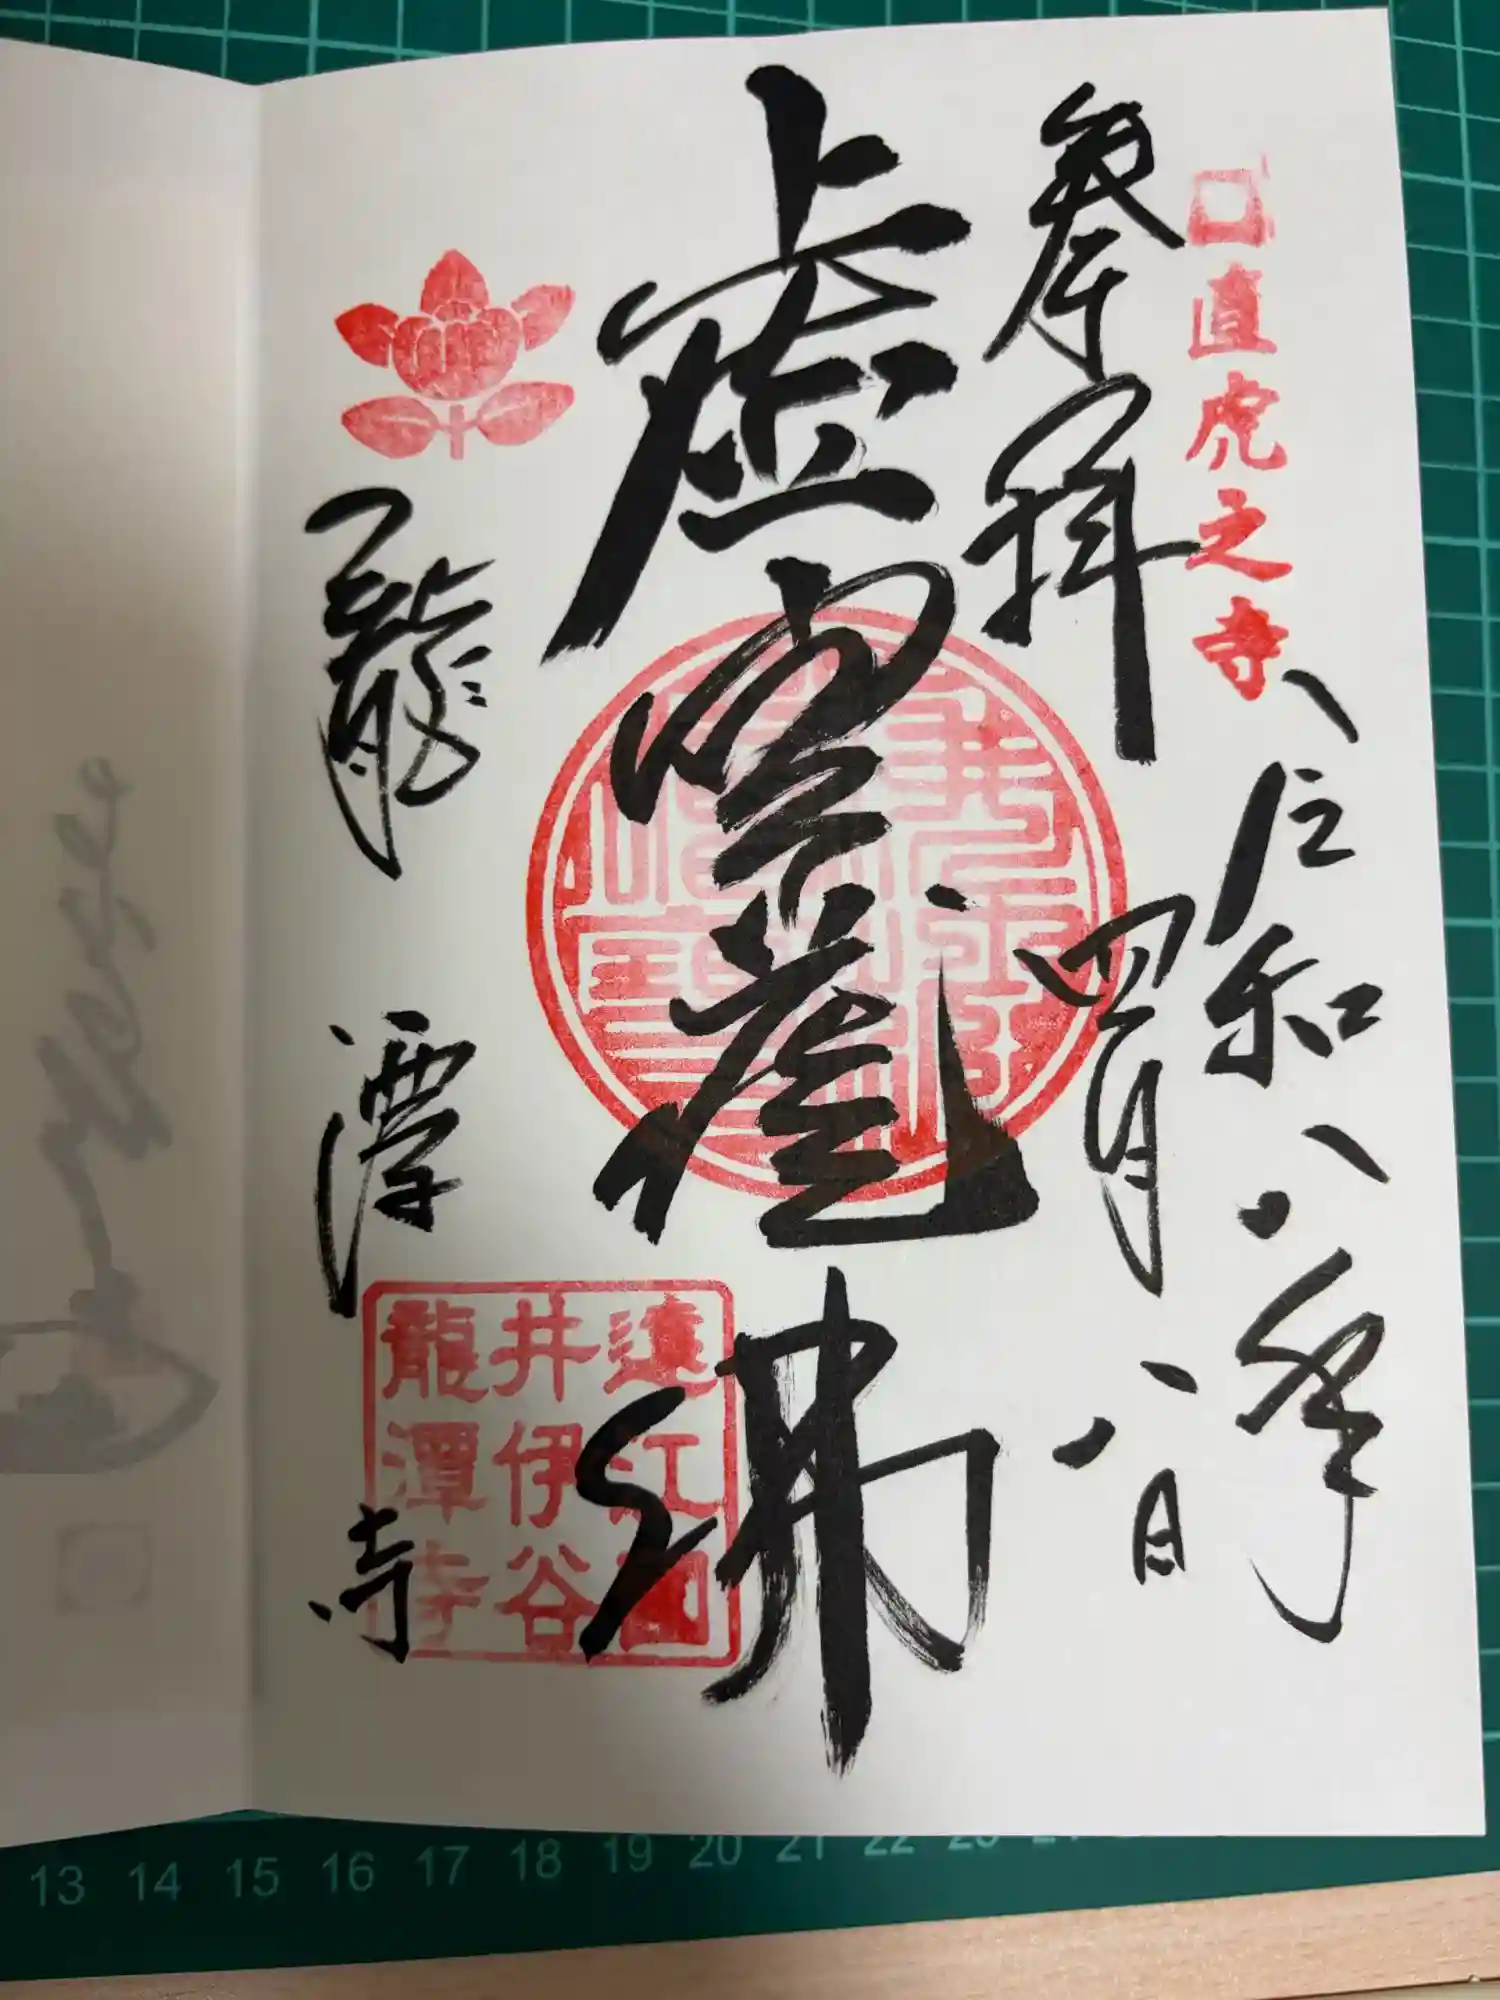 直虎之寺
令和八年
四月八日
奉拝
虚空蔵佛
龍潭寺
遠江国
井伊谷
龍潭寺
13 14 15 16 17 18 19 20 21 22 23